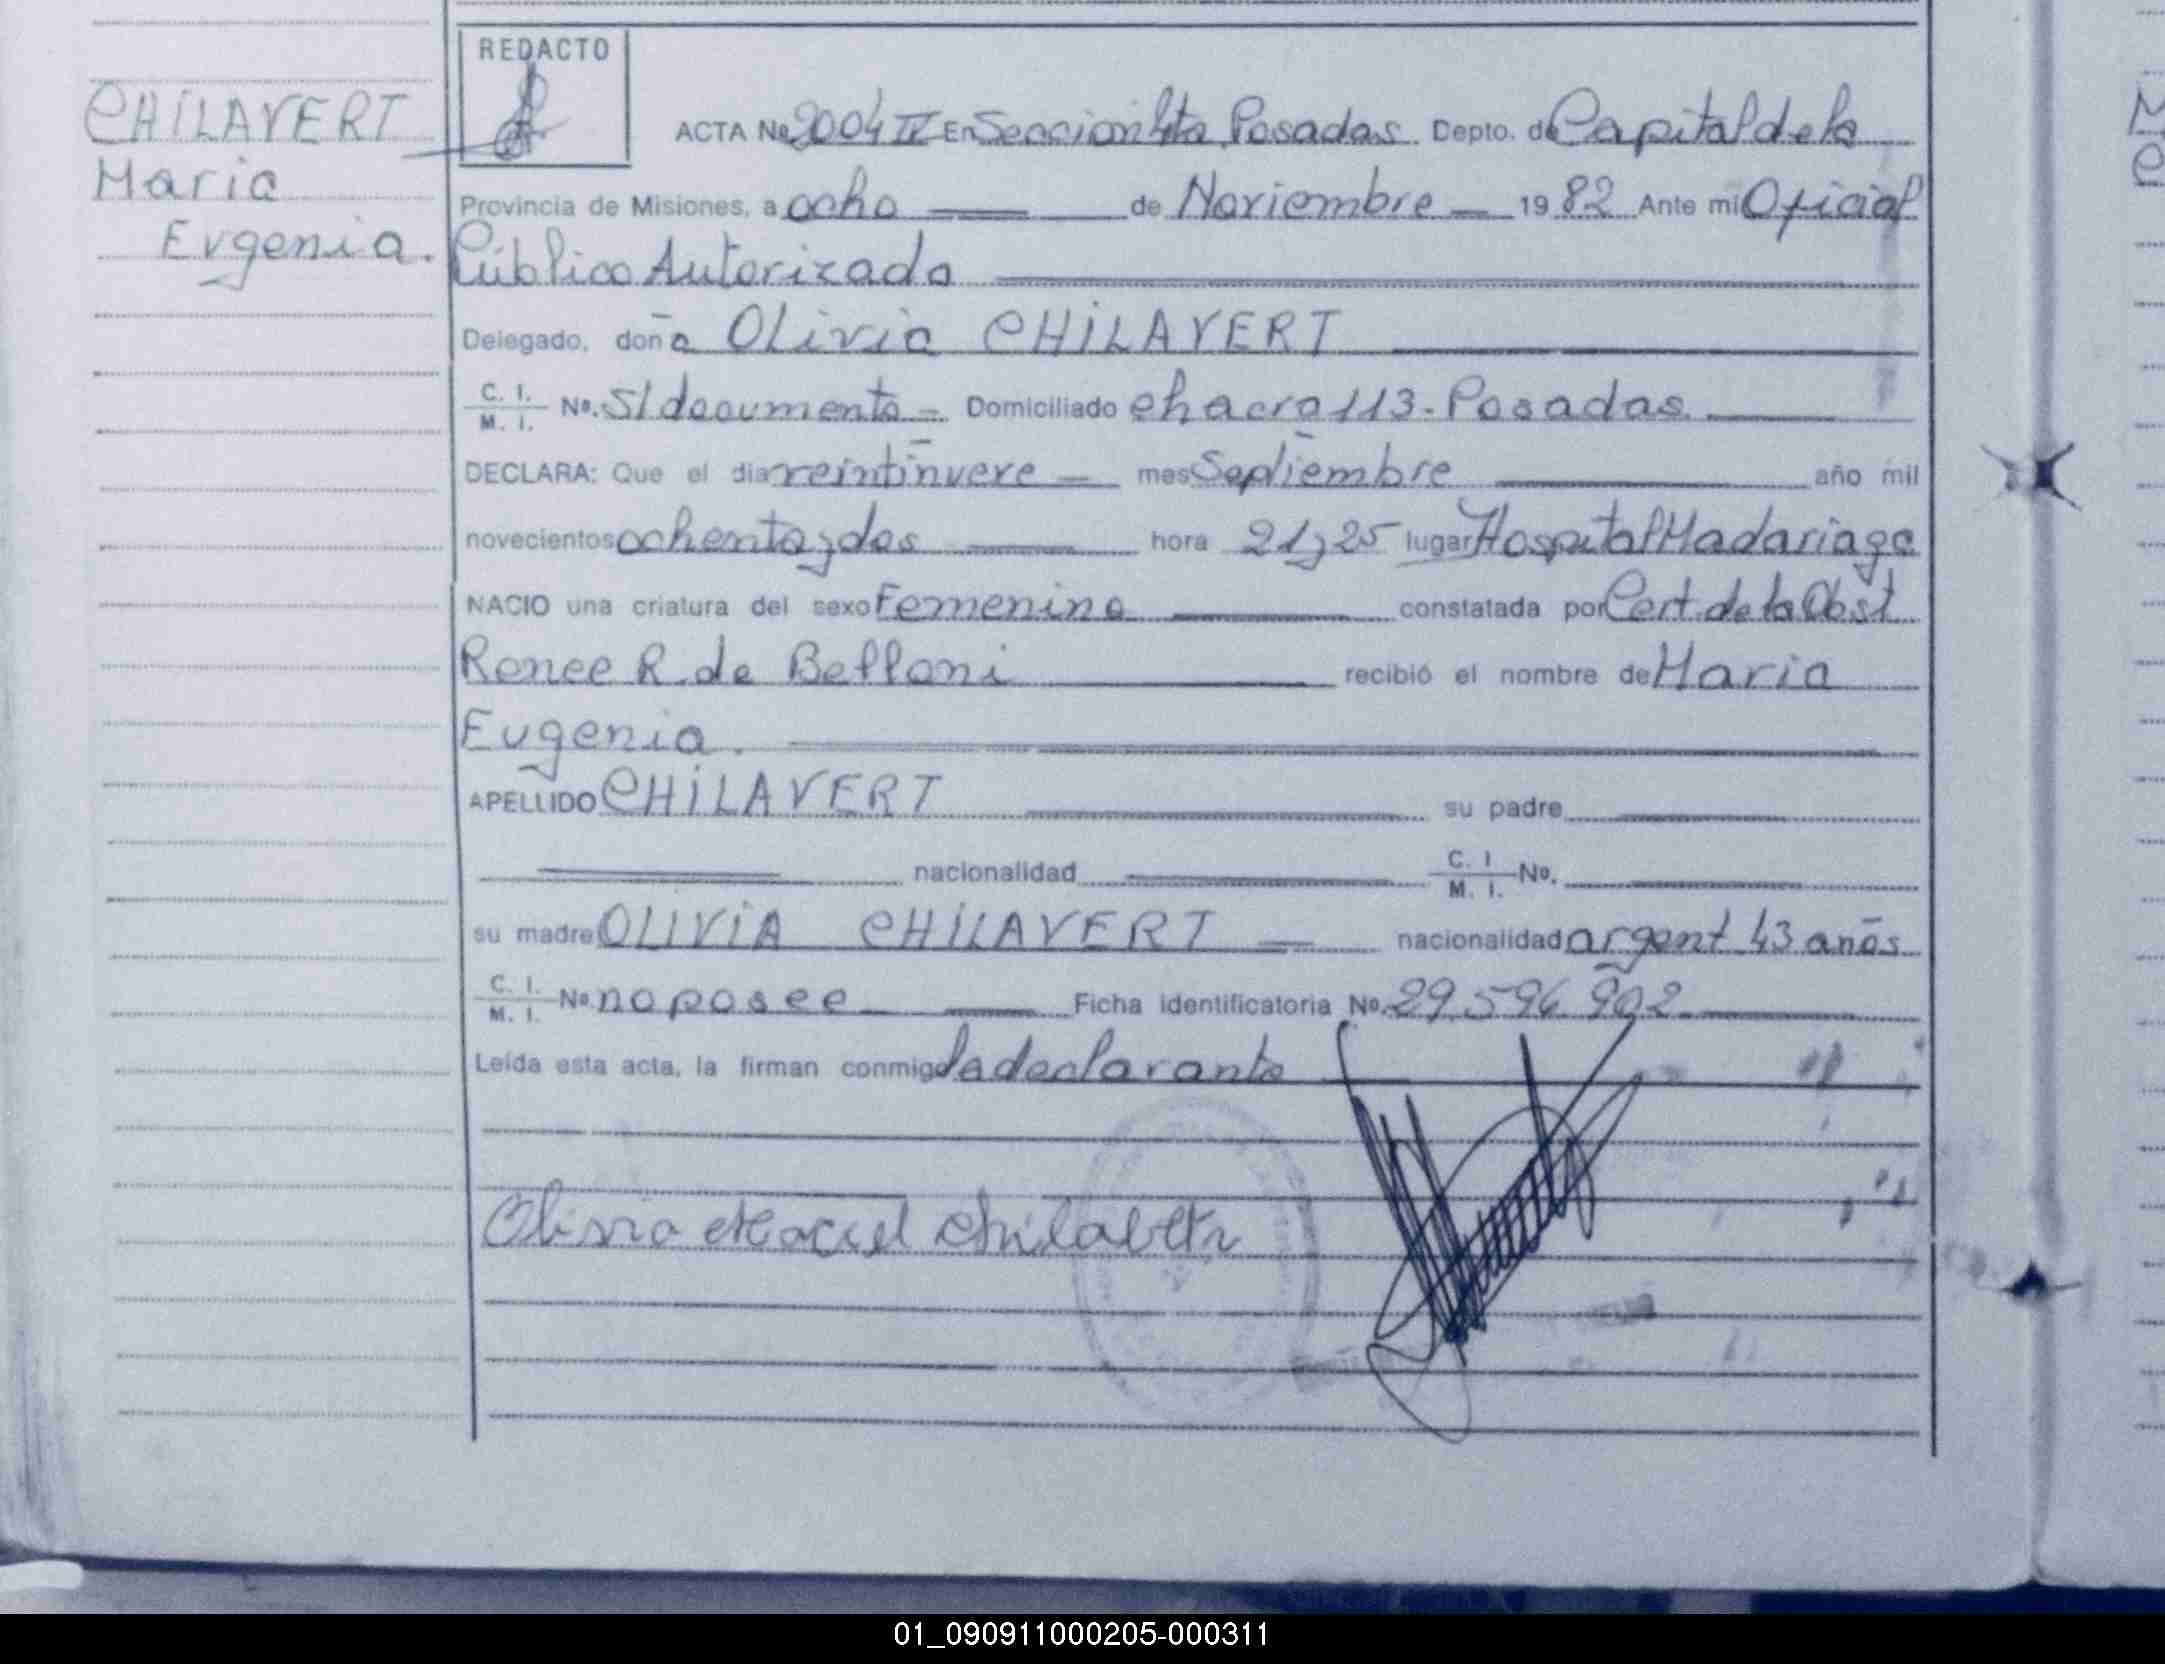 REDACTO
CHILAVERT
Maria
Eugenia.
ACTA No. 2004 IV En Seccion 4ta Posadas Depto. de Capital de la
Provincia de Misiones, a ocho de Noviembre 1982 Ante mi Oficial
Público Autorizado
Delegado, doña Olivia CHILAVERT
C. I. M. I. No. S/documento Domiciliado chacra 113 - Posadas
DECLARA: Que el dia veintinueve mes Septiembre año mil
novecientos ochenta y dos hora 21 y 25 lugar Hospital Madariaga
NACIO una criatura del sexo Femenino constatada por Cert. de la Obst
Renee R. de Belloni recibió el nombre de Maria
Eugenia.
APELLIDO CHILAVERT su padre
nacionalidad C. I. M. I. No.
su madre OLIVIA CHILAVERT nacionalidad argent 43 años
C. I. M. I. No. no posee Ficha identificatoria No. 29.596.902
Leída esta acta, la firman conmigo la declarante
Olivia
01_090911000205-000311